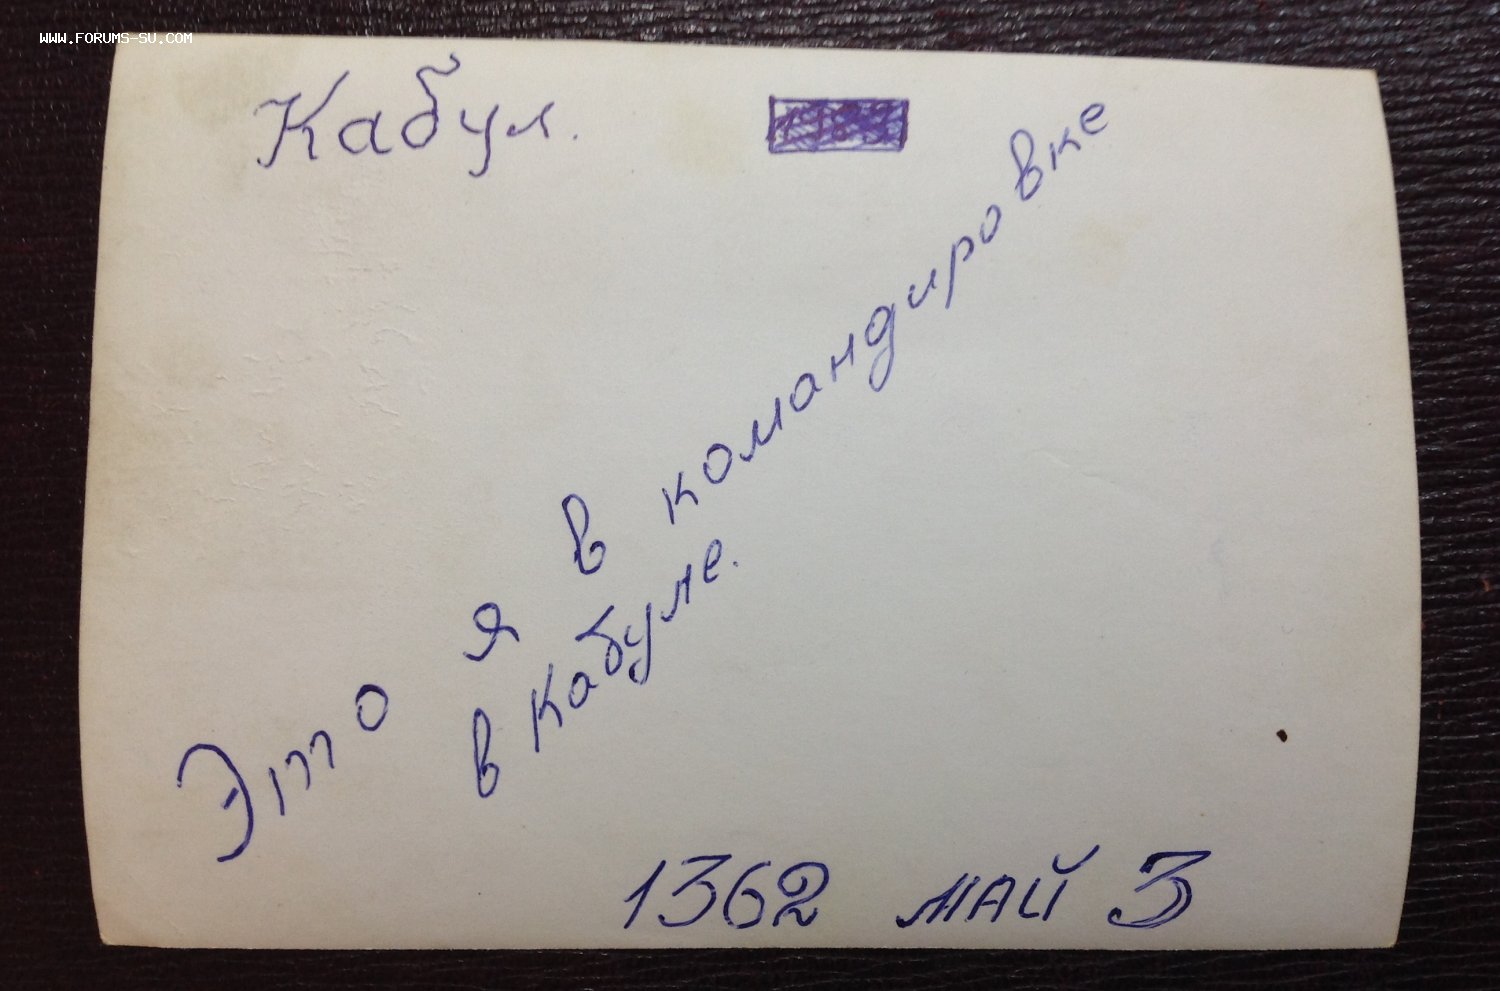 WWW.FORUMS-SU.COM
Кабул.
Это я в командировке
в Кабуле.
1362 май 3